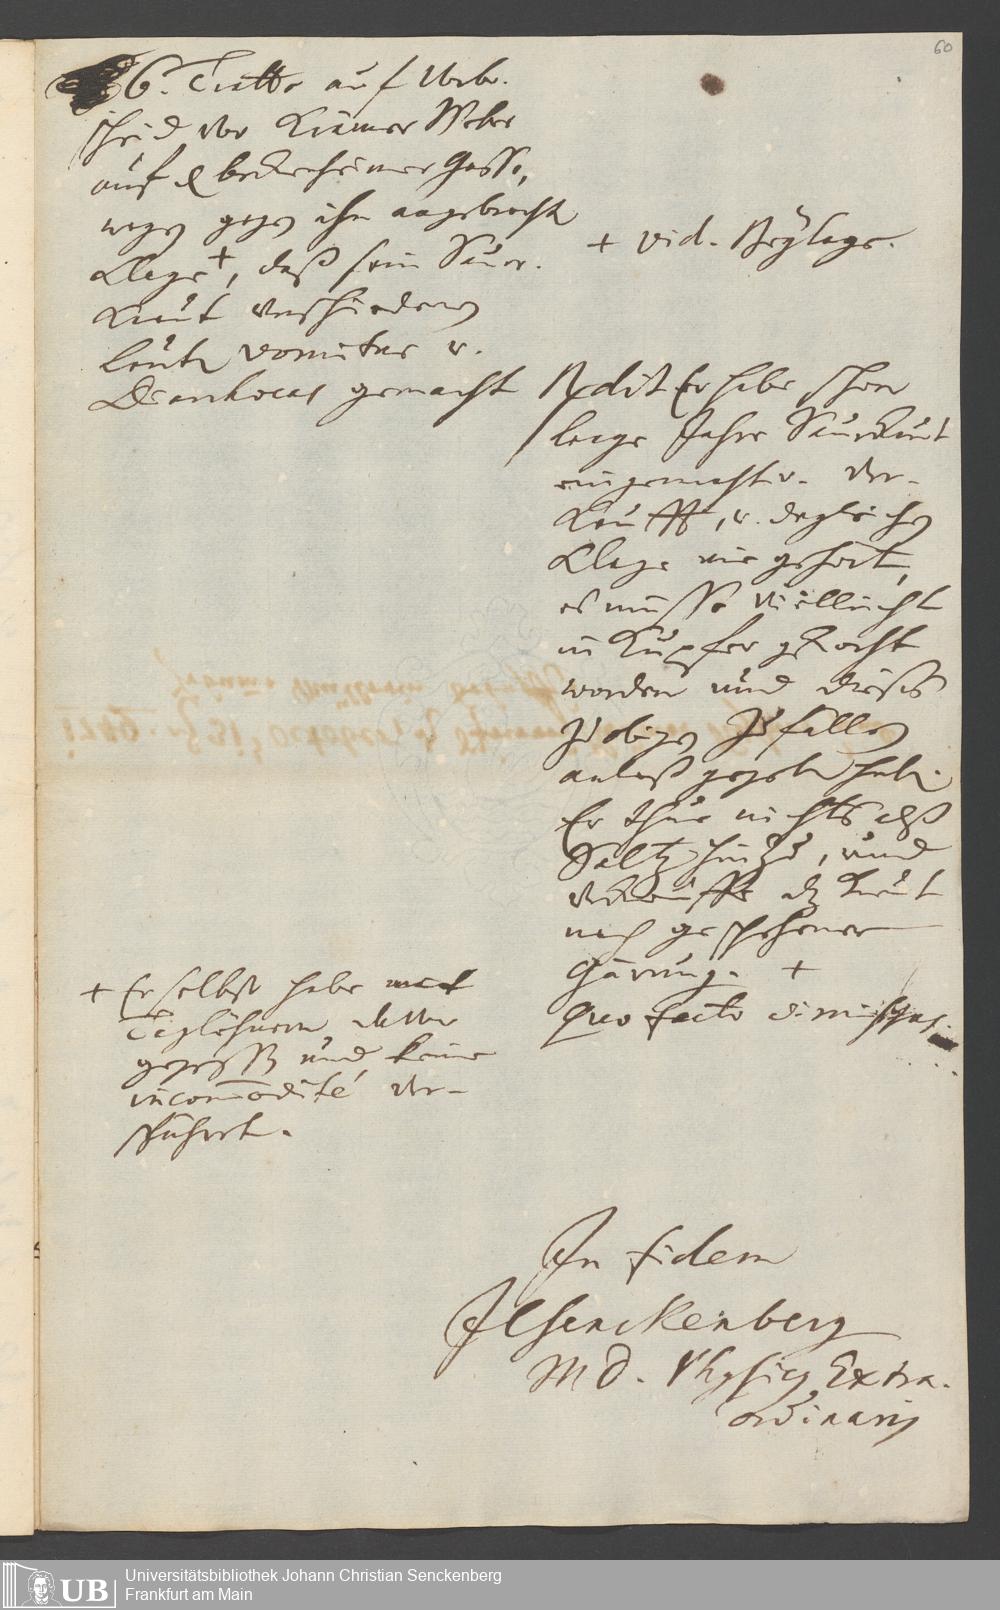 60
6. Tratte auf Vorbe-
scheid der Krämer Weber
auf d bockenheimer Gasse,
wegen gegen ihn angebrachte
Klage +, daß sein Sauer-
Kraut verschiedenen
leuten vomitus u.
Diarrhoeas gemacht
+ vid. Beylage.
Rdit Er habe schon
lange Jahre Saurkraut
eingemacht u. ver-
kaufft, u. dergleichen
Klage nie gehört,
es müsse vielleicht
in Kupfer gekocht
worden und dieses
zu obigen Zufällen
anlaß gegeben haben.
Er thue nichts als
Saltz hinzu, und
verkauffe das Kraut
nach geschehener
Gärung. +
quo facto dimissus.
+ Er selbst habe mit
Taglöhnern davon
gegessen und keine
incommodité ver-
spühret.
In fidem
JCSenckenberg
MD. Physicus Extra-
ordinarius
UB
Universitätsbibliothek Johann Christian Senckenberg
Frankfurt am Main